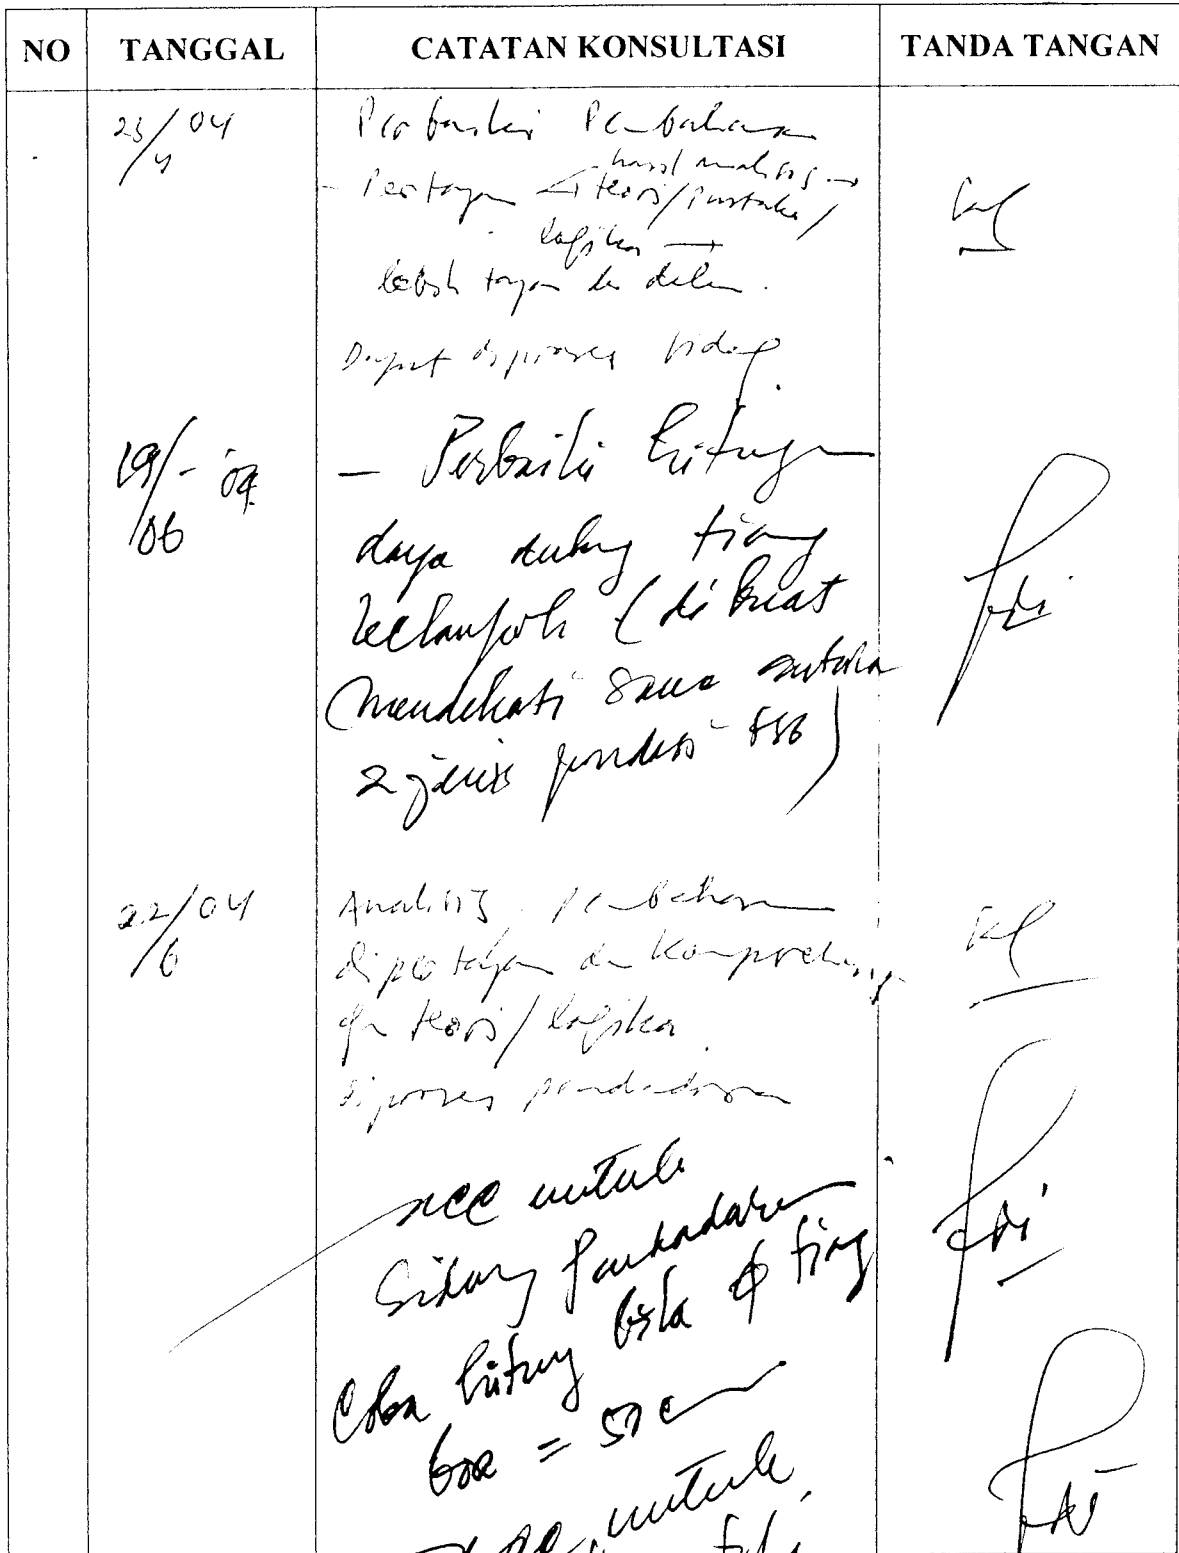 NO TANGGAL CATATAN KONSULTASI TANDA TANGAN
23/4 04 Perbaiki Pembahasan
hasil analisis →
- Pertajam teori/pustaka/
logika →
lebih tajam dalam.
Dapat diproses sidang
19/06 - '04 - Perbaiki hitungan
daya dukung tiang
kelompok (di buat
mendekati sama antara
2 jenis pondasi tsb)
22/6 04 Analisis pembahasan
dipertajam dan komprehensif
dgn teori/logika
diproses pendadaran
ACC untuk
Sidang Pendadaran
Coba hitung bila φ tiang
bor = 50 cm
untuk